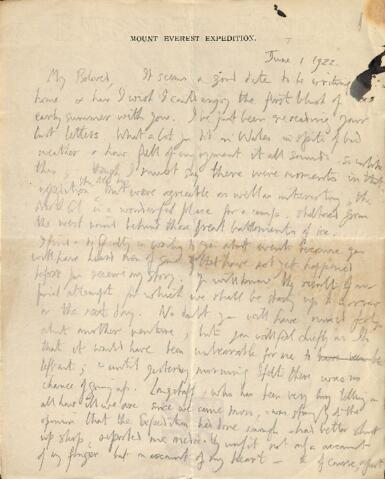 MOUNT EVEREST EXPEDITION.
June 1 1922.
My Beloved, It seems a good date to be writing
home & how I wish I could enjoy the first blush of
early summer with you. I've just been re-reading your
last letters. What a lot you did in Wales in spite of bad
weather & how full of enjoyment it all sounds. So unlike
this; though I must say there were moments in this
expedition that were agreeable as well as interesting; the
North Col is a wonderful place for a camp, sheltered from
the west wind behind those great battlements of ice.
I find a difficulty in writing to you about events because you
will have heard news of what have not yet happened
before you receive my story. You will know the result of our
final attempt for which we shall be starting up tomorrow
or the next day. No doubt you will have mixed feelings
about another venture, but you will feel chiefly as I do
that it would have been unbearable for me to be
left out; & until yesterday morning I felt there was no
chance of going up. Longstaff, who has been very busy telling us
all how ill we are since we came down, was strongly of the
opinion that the Expedition had done enough & had better shut
up shop, reported me medically unfit not on account
of my finger but on account of my heart — & of course, apart